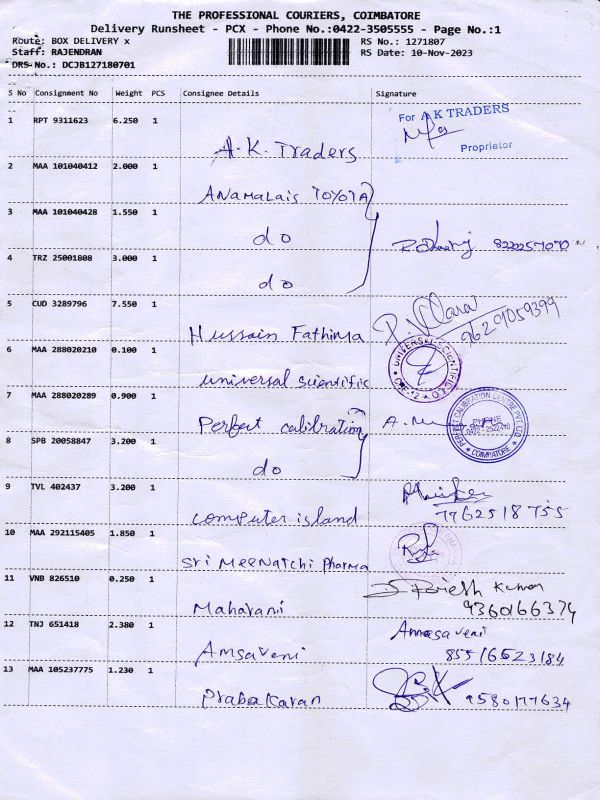 THE PROFESSIONAL COURIERS, COIMBATORE
Delivery Runsheet - PCX - Phone No.:0422-3505555 - Page No.:1
Route: BOX DELIVERY x RS No.: 1271807
Staff: RAJENDRAN RS Date: 10-Nov-2023
DRS No.: DCJB127180701
S No Consignment No Weight PCS Consignee Details Signature
1 RPT 9311623 6.250 1 A.K. Traders For A K TRADERS
Proprietor
2 MAA 101040412 2.000 1 ANAMALAIS TOYOTA
3 MAA 101040428 1.550 1 do
4 TRZ 25001808 3.000 1 do
5 CUD 3289796 7.550 1 Hussain Fathima 7629059399
6 MAA 288020210 0.100 1 universal scientific UNIVERSAL SCIENTIFIC
7 MAA 288020289 0.900 1 Perfect calibration
8 SPB 20058847 3.200 1 do COIMBATORE
9 TVL 402437 3.200 1 computer island 7762518755
10 MAA 292115405 1.850 1 Sri Meenatchi Pharma
11 VNB 826510 0.250 1 Maharani
12 TNJ 651418 2.380 1 Amsaveni Amsaveni
13 MAA 105237775 1.230 1 Prabakaran 9580177634